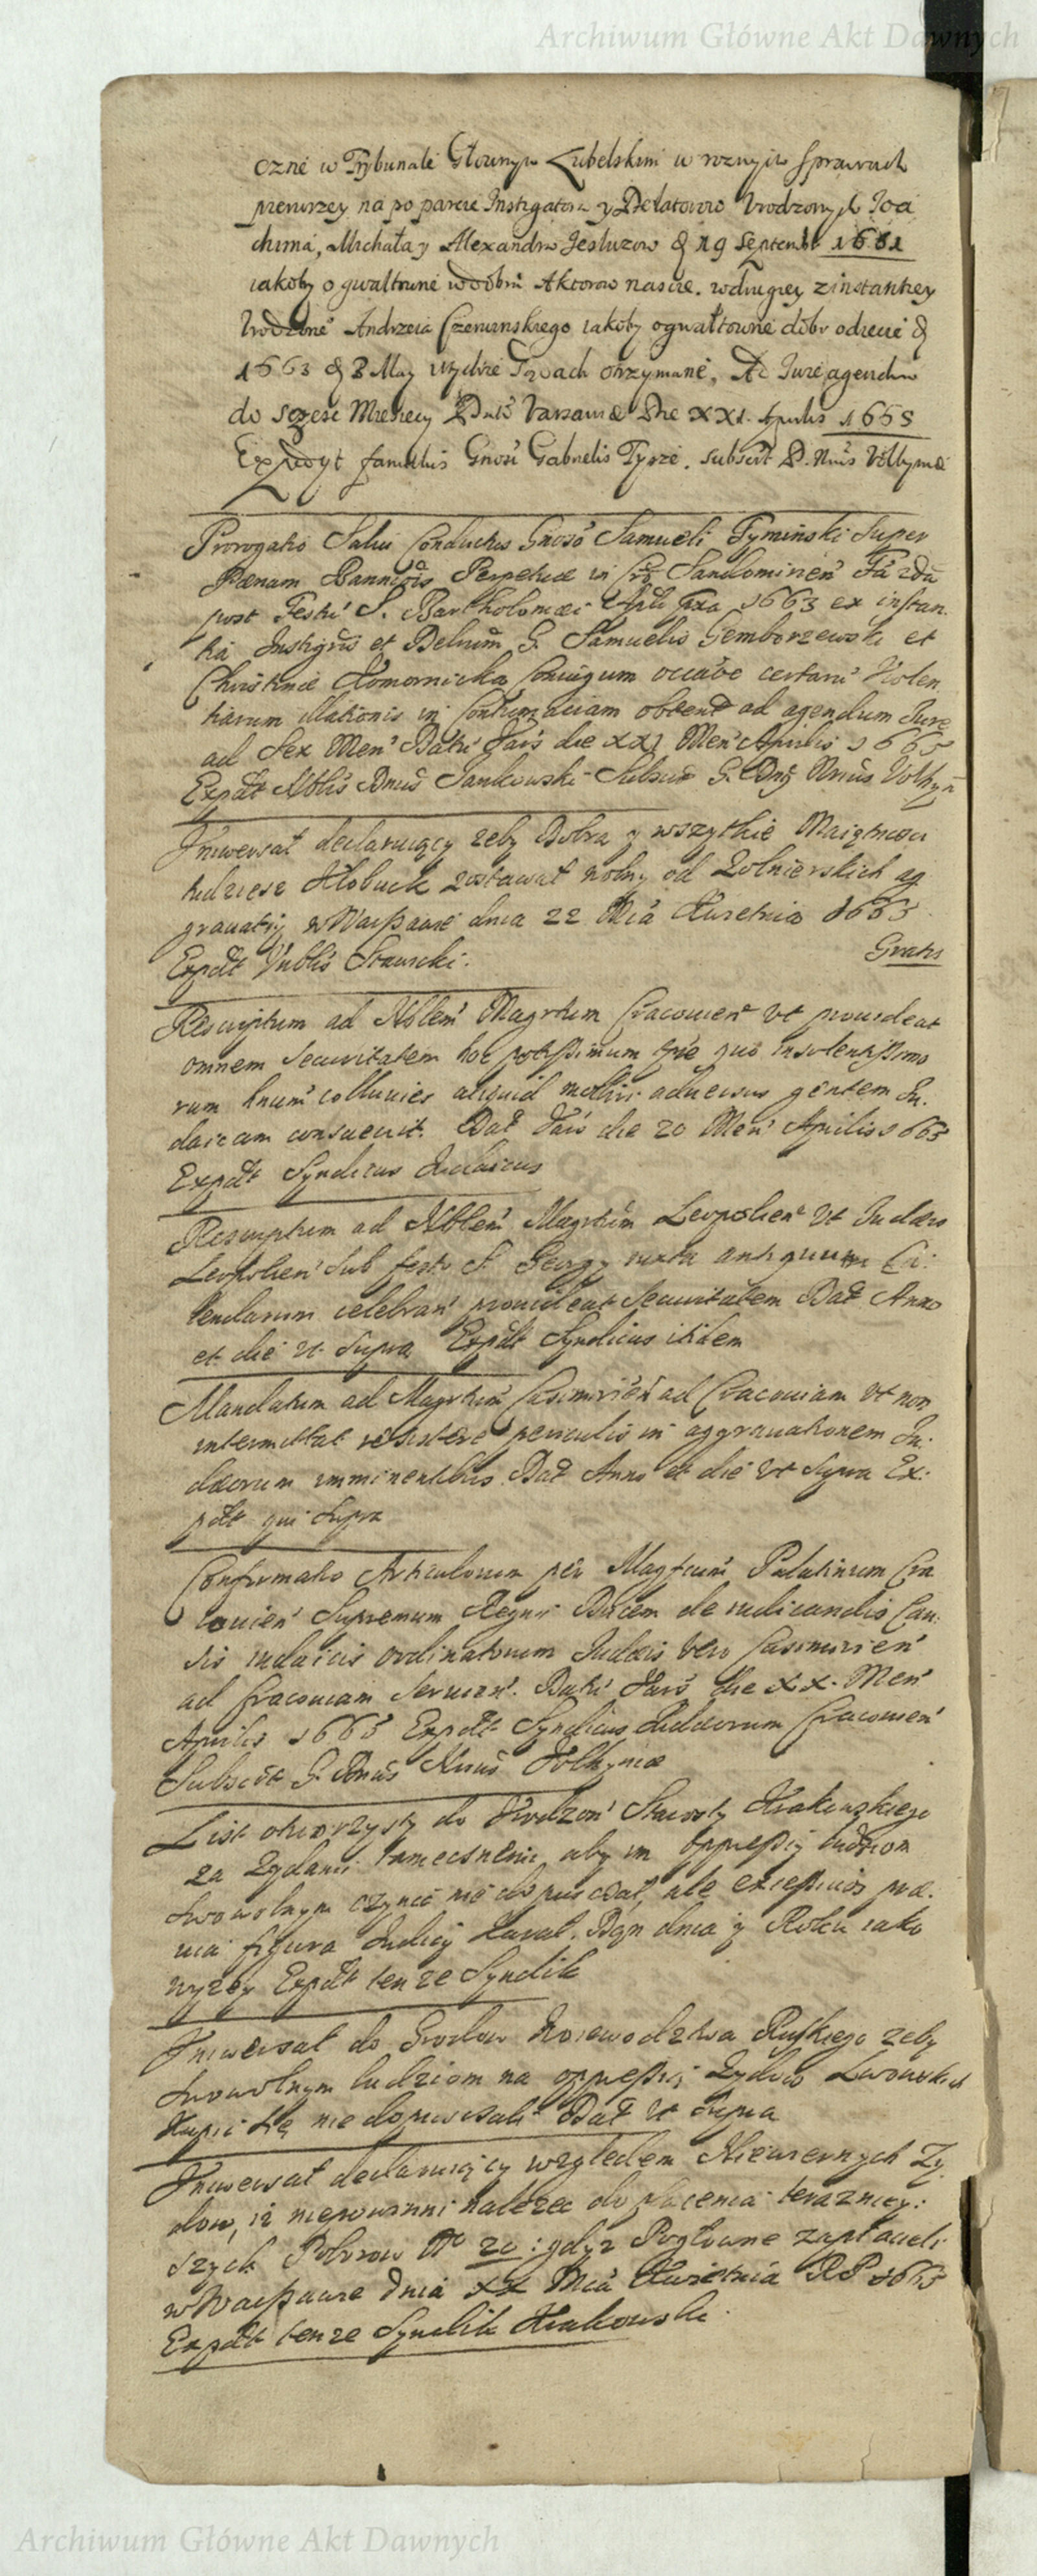 Archiwum Główne Akt Dawnych
ozne w Trybunale Głownym Lubelskim w roznych sprawach
pierwszey na poparcie Instigatora y Delatorow Vrodzonych Joa
chima, Michała y Alexandra 19 Septembr 1661
iakoby o gwałtowne w dobra Aktorow nascie. w drugiey z instantiey
Vrodzone Andrzeia Czerminskiego iakoby o gwałtowne dobr odiecie
1663 8 May otrzymane. Ad Jure agendum
do szesc Miesięcy Varsaviæ Die XXI. Aprilis 1665
Expedyt famulus Gnosi Gabrielis subscr D. Nrius Volhyniæ
Prorogatio Salvi Conductus Gnoso Samueli Tyminski Super
Pœnam Bannitiois Perpetuæ in Sandomirien Fa 2da
post Festu S. Bartholomæi Apli 1663 ex instan
tia Instigris et Delnium G. Samuelis Gemborzewski et
Christinæ Komornicka Coniugum occaõe certaru Violen
tiarum illationis in Contumaciam obtent ad agendum Jure
ad Sex Men Datu Vars die XXI Men Aprilis 1665
Expdt Nblis Dnus Jankowski Subscr G. Dnus Nrius Volhyn
Vniwersał declaruiący zeby Dobra y wszytkie Maiętnosci
tudziesz Kłobuck zostawał wolny od Zołnierskich ag
grauatiy w Warszawie dnia 22 Mca Kwietnia 1665
Expdt Nblis Stawicki. Gratis
Rescriptum ad Nblem Magrtum Cracovien Vt prouideat
omnem Securitatem hoc potissimum tpre quo insolentissimo
rum hnum colluuies aliquid moliri aduersus gentem Ju.
daicam consueuit. Dat Vars die 20 Men Aprilis 1665
Expdt Syndicus Judaicus
Rescriptum ad Nblem Magrtum Leopolien Vt Judæis
Leopolien Sub festo S. Georgy iuxta antiquum Ca:
lendarium celebran prouideat Securitatem Dat Anno
et die ut Supra Expdt Syndicus itidem
Mandatum ad Magrtum Casimirien ad Cracouiam Vt non
intermittat resistere periculis in aggrauationem Ju.
dæorum imminentibus. Dat Anno et die Vt Supra Ex:
pdt qui Supra
Confirmatio Articulorum per Magficum Palatinum Cra
couien Supremum Regni Ducem de iudicandis Cau:
sis iudaicis ordinatorum Judæis vero Casimirien
ad Cracouiam Seruien. Datu Vars die XX. Men
Aprilis 1665 Expdt Syndicus Judæorum Cracouien
Subscrt G. Dnus Nrius Volhyniæ
List otworzysty do Vrodzon Starosty Krakowskiego
za Zydami tameczneni aby im oppressiy ludziom
swowolnym czynic nie dopuscał, ale
figura Dan dnia y Roku iako
wyzey Expdt tenze Syndik
Vniwersał do Grodow Woiewodztwa Ruskiego zeby
swowolnym ludziom na oppressią Zydow Lwowskich
Kupic się niedopuszcali Dat ut Supra
Vniwersał declaruiący względem Niewiernych Zy
dow, iz niepowinni nalezec do płacenia terazniey:
szych Poborow No 20 : gdyz Pogłowne zapłacili
w Warszawie Dnia XX Mca Kwietnia RP 1665
Expdt tenze Syndik Krakowski.
Archiwum Główne Akt Dawnych